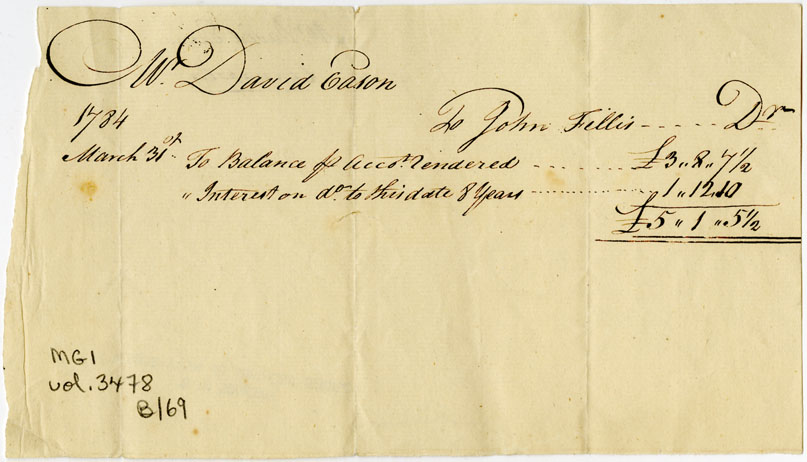 Mr David Eason
1784 To John Fillis ---- Dr
March 31st To Balance ⅌ Accot. rendered ...... £3 „ 8 „ 7 1/2
„ Interest on do. to this date 8 Years .......... 1 „ 12 „ 10
£5 „ 1 „ 5 1/2
MG1
vol. 3478
B/69